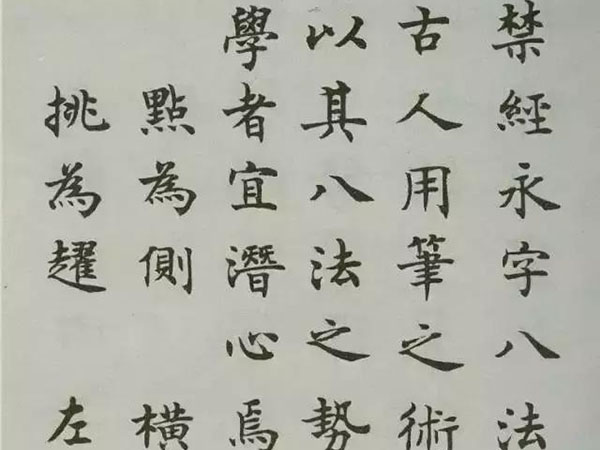 禁經永字八法
古人用筆之術
以其八法之勢
學者宜潛心焉
點為側 橫
挑為趯 左